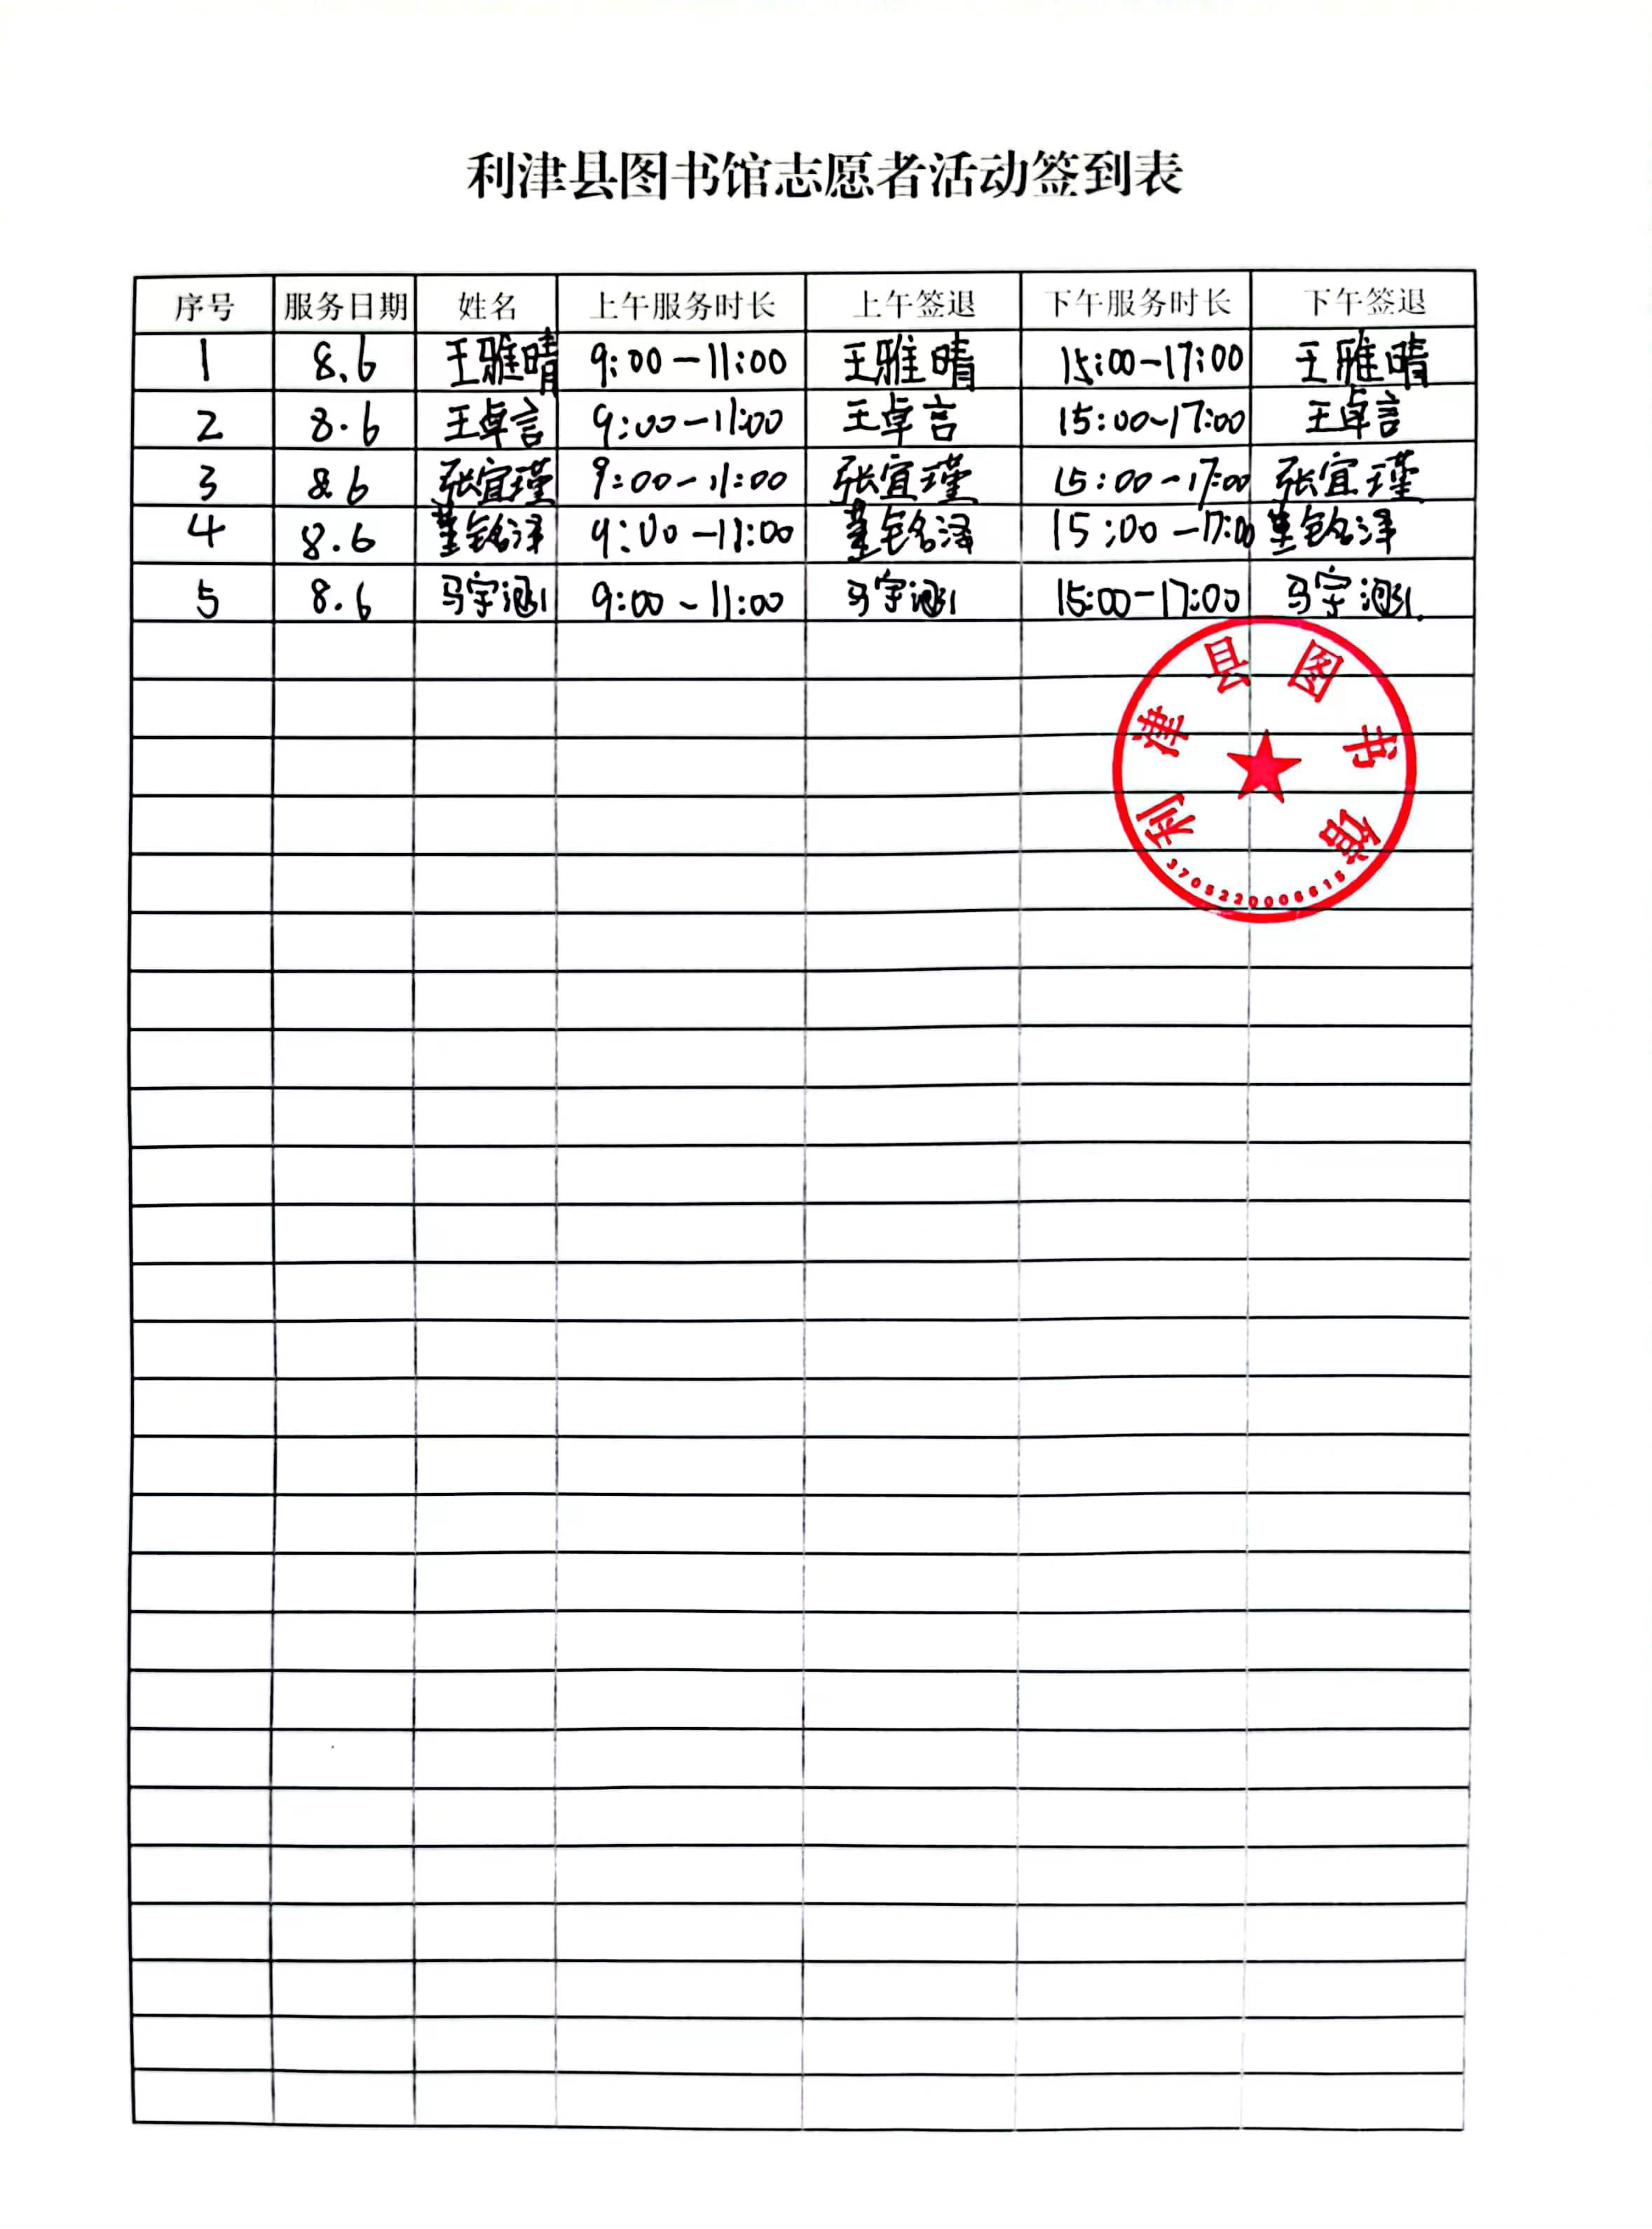 利津县图书馆志愿者活动签到表
序号 服务日期 姓名 上午服务时长 上午签退 下午服务时长 下午签退
1 8.6 王雅晴 9:00-11:00 王雅晴 15:00-17:00 王雅晴
2 8.6 王卓言 9:00-11:00 王卓言 15:00-17:00 王卓言
3 8.6 张宜瑾 9:00-11:00 张宜瑾 15:00-17:00 张宜瑾
4 8.6 董铭泽 9:00-11:00 董铭泽 15:00-17:00 董铭泽
5 8.6 马宇涵 9:00-11:00 马宇涵 15:00-17:00 马宇涵
利津县图书馆
3705220006615